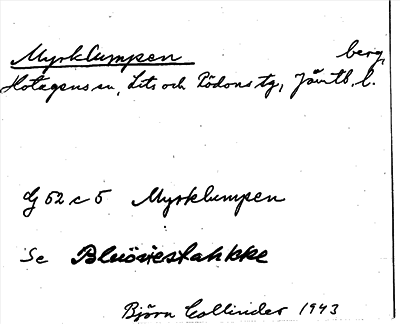 Myrklumpen berg,
Hotagens sn, Lits och Rödöns tg, Jämtl. l.
G 52 c 5 Myrklumpen
Se Bluövrestahkke
Björn Collinder 1943